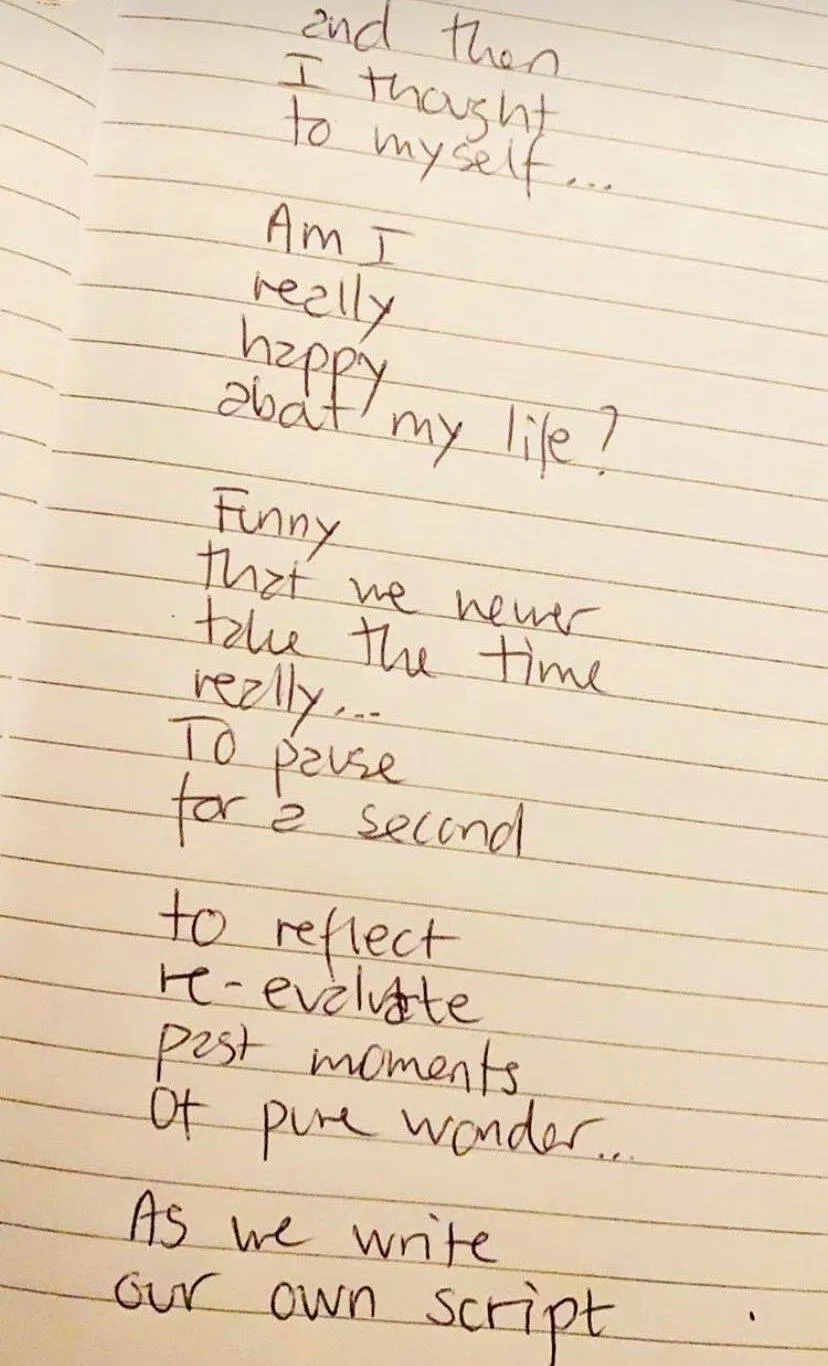 and then
I thought
to myself...
Am I
really
happy
about my life?
Funny
that we never
take the time
really...
To pause
for a second
to reflect
re-evaluate
past moments
Of pure wonder...
As we write
our own script